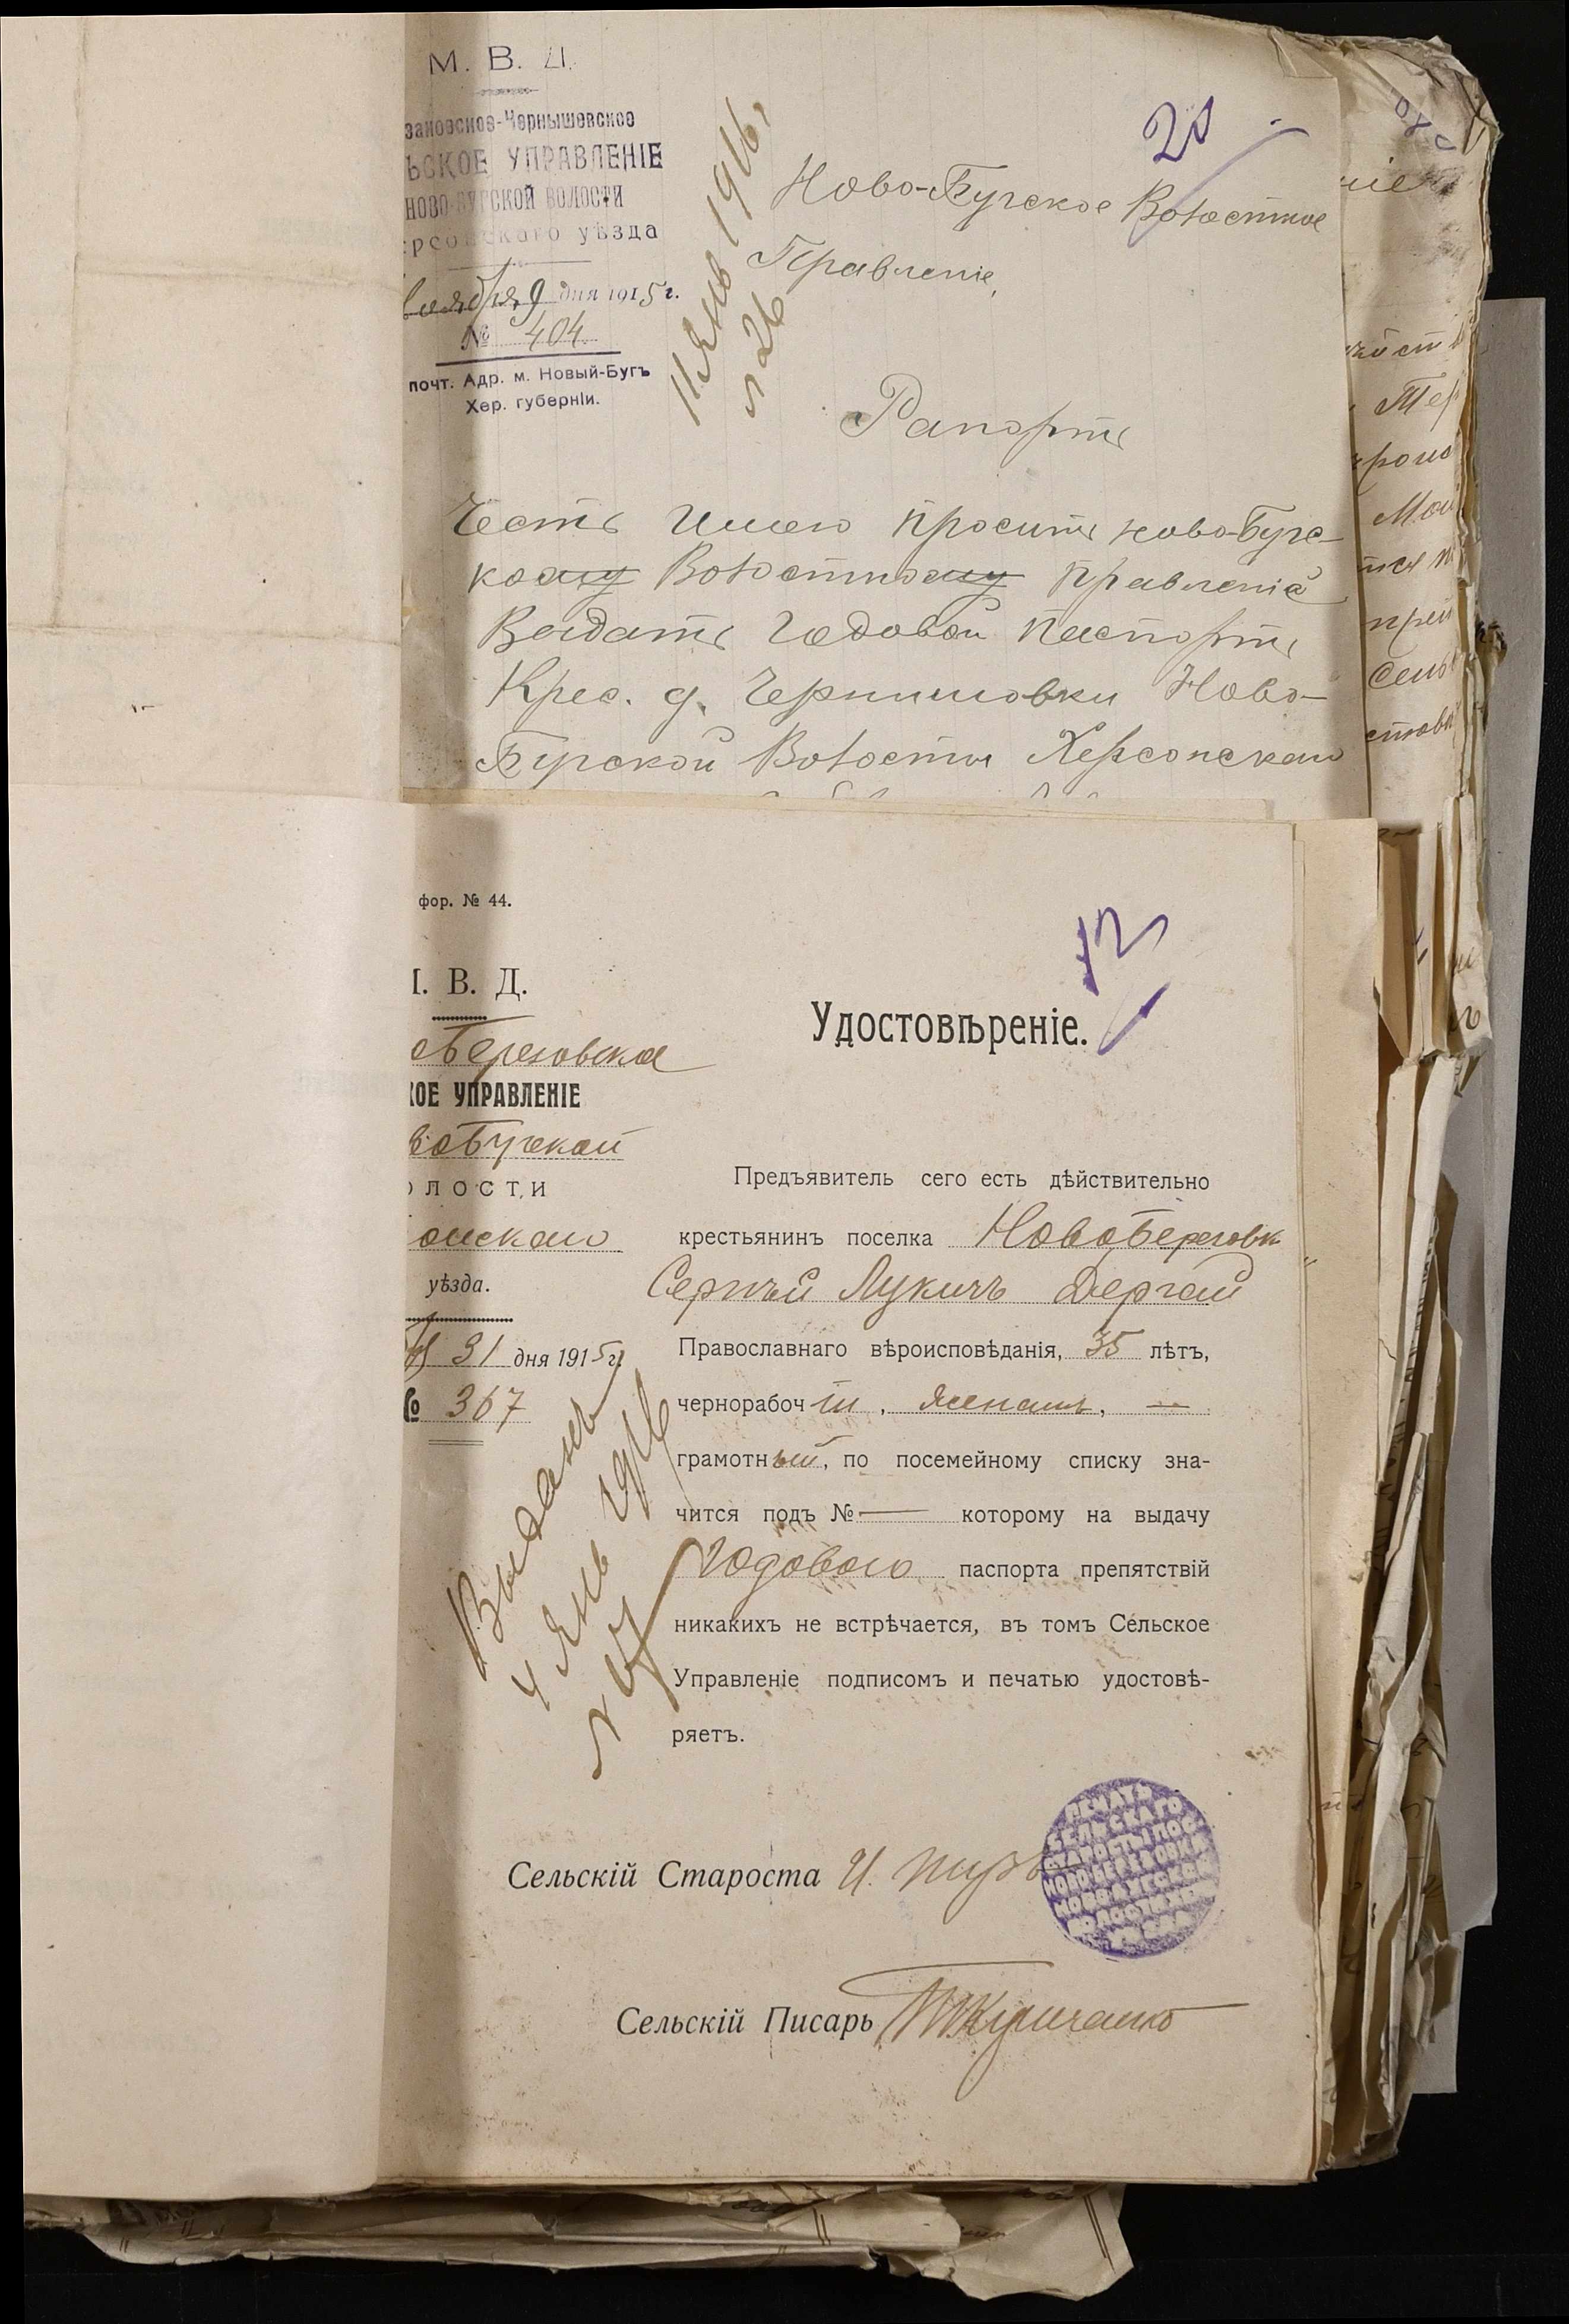 М. В. Д.
зановское-Чернышевское
ЬСКОЕ УПРАВЛЕНІЕ
НОВО-БУГСКОЙ ВОЛОСТИ
ерсонскаго уѣзда
9 дня 1915 г.
№ 404
почт. Адр. м. Новый-Бугъ
Хер. губерніи.
11 Янв 1916,
№ 26
20
Ново-Бугское Волостное
Правленіе,
Рапортъ
Честь имею просить ново-Бугс-
кому Волостному правленіе
Выдать годовой паспортъ
Крес. д. Чернишовки Ново-
Бугской Волости Херсонскаго
фор. № 44.
І. В. Д.
оБерезовское
КОЕ УПРАВЛЕНІЕ
воБугской
ОЛОСТИ
онскаго
уѣзда.
31 дня 1915 г.
№ 367
Выданъ
4 Янв 1916
№ 17
12
Удостовѣреніе.
Предъявитель сего есть дѣйствительно
крестьянинъ поселка НовоБерезовк
Сергѣй Лукичъ Дергай
Православнаго вѣроисповѣданія, 35 лѣтъ,
чернорабочій, женатъ, —
грамотный, по посемейному списку зна-
чится подъ № — которому на выдачу
Годового паспорта препятствій
никакихъ не встрѣчается, въ томъ Сельское
Управленіе подписомъ и печатью удостовѣ-
ряетъ.
Сельскій Староста И.
ПЕЧАТЬ
СЕЛЬСКАГО
СТАРОСТЫ ПОС
НОВОБЕРЕЗОВКИ
НОВОБУГСКОЙ
ВОЛОСТИ ХЕР
УѢЗДА
Сельскій Писарь